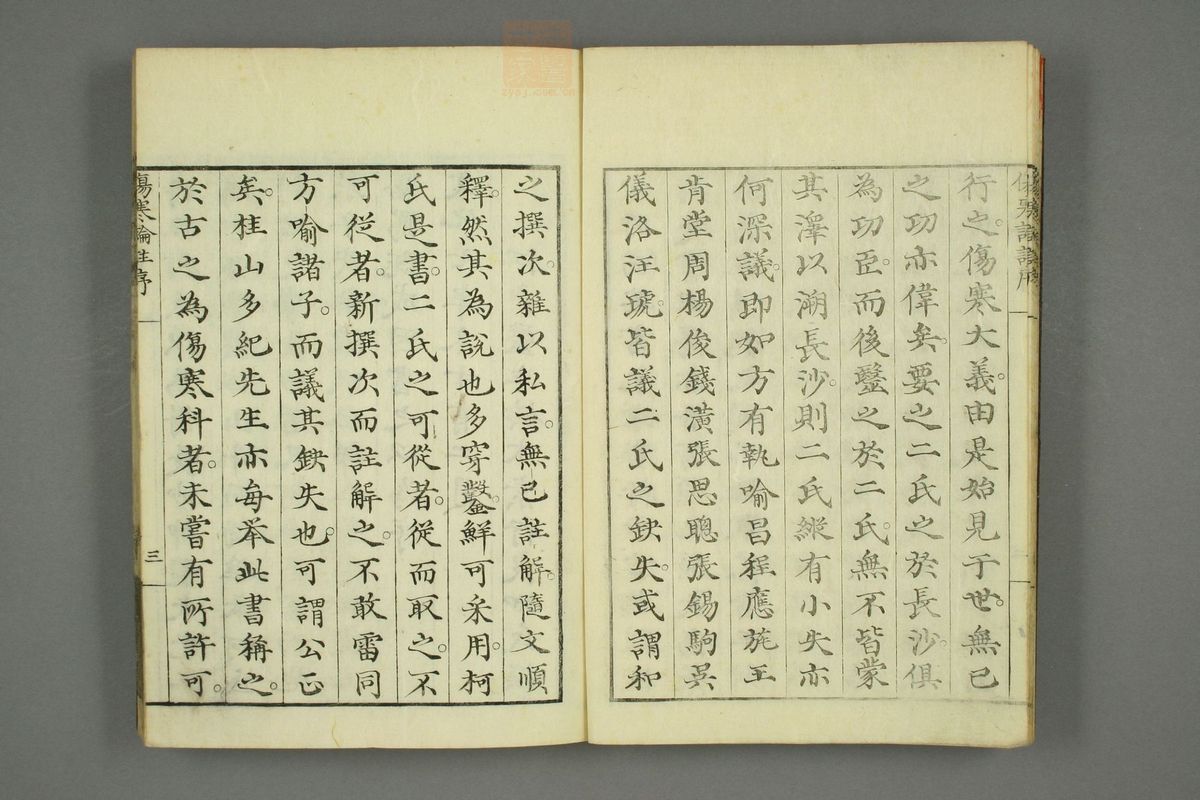 行之。傷寒大義。由是始見于世。無已
之功亦偉矣。要之二氏之於長沙。俱
為功臣。而後毉之於二氏。無不皆蒙
其澤以溯長沙。則二氏縱有小失亦
何深議。即如方有執喻昌程應旄王
肯堂周楊俊錢潢張思聰張錫駒吳
儀洛汪琥。皆議二氏之鈌失。或謂和
之撰次。雜以私言。無已註解。隨文順
釋。然其為說也多穿鑿。鮮可采用。柯
氏是書。二氏之可從者。從而取之。不
可從者。新撰次而註解之。不敢雷同
方喻諸子。而議其鈌失也。可謂公正
矣。桂山多紀先生亦每举此書稱之。
於古之為傷寒科者。未嘗有所許可。
傷寒論註序
三